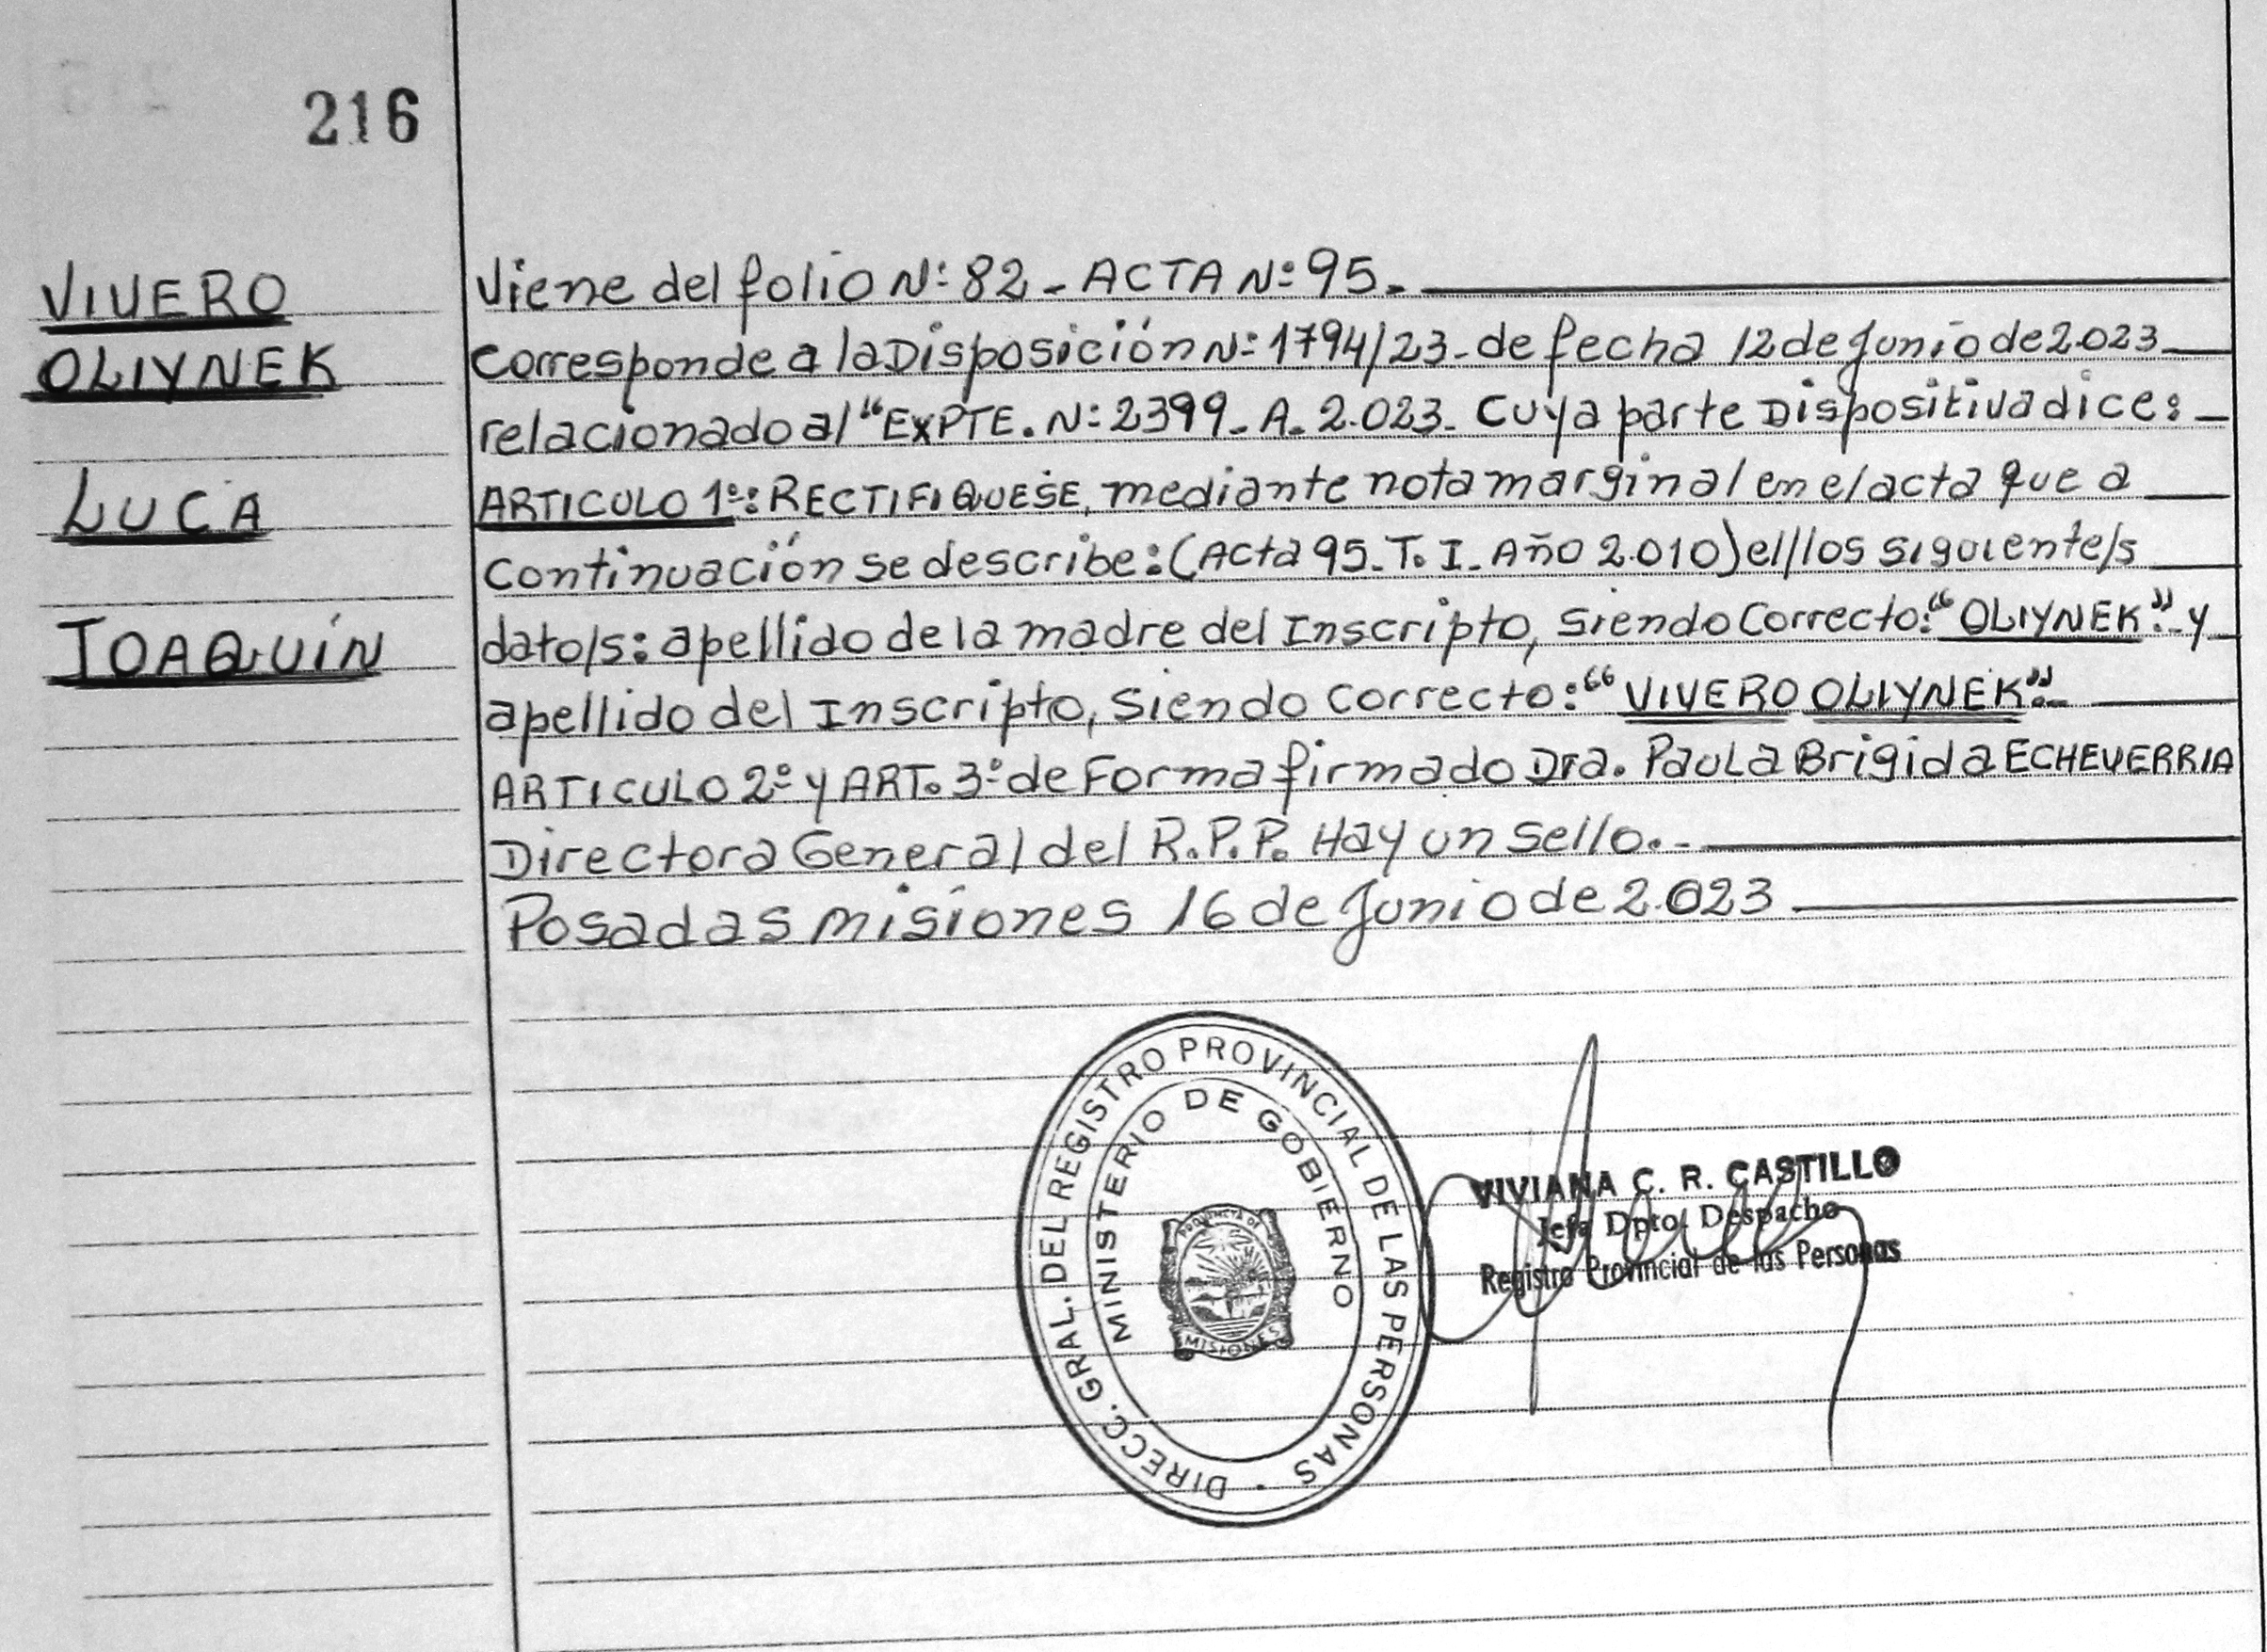 216
VIVERO
OLIYNEK
LUCA
JOAQUÍN
Viene del folio Nº: 82 - ACTA Nº: 95.-
Corresponde a la Disposición Nº: 1794/23 - de fecha 12 de Junio de 2.023
relacionado al "EXPTE. Nº: 2399 - A - 2.023 - Cuya parte Dispositiva dice: -
ARTICULO 1º: RECTIFIQUESE, mediante nota marginal en el acta que a
Continuación se describe: (Acta 95 - T. I - Año 2.010) el/los siguiente/s
dato/s: apellido de la madre del Inscripto, siendo Correcto: "OLIYNEK" - y
apellido del Inscripto, siendo correcto: "VIVERO OLIYNEK".-
ARTICULO 2º y ART. 3º de Forma firmado Dra. Paula Brigida ECHEVERRIA
Directora General del R.P.P. Hay un sello.-
Posadas misiones 16 de Junio de 2.023
DIRECC. GRAL. DEL REGISTRO PROVINCIAL DE LAS PERSONAS
MINISTERIO DE GOBIERNO
PROVINCIA DE
MISIONES
VIVIANA C. R. CASTILLO
Jefa Dpto. Despacho
Registro Provincial de las Personas